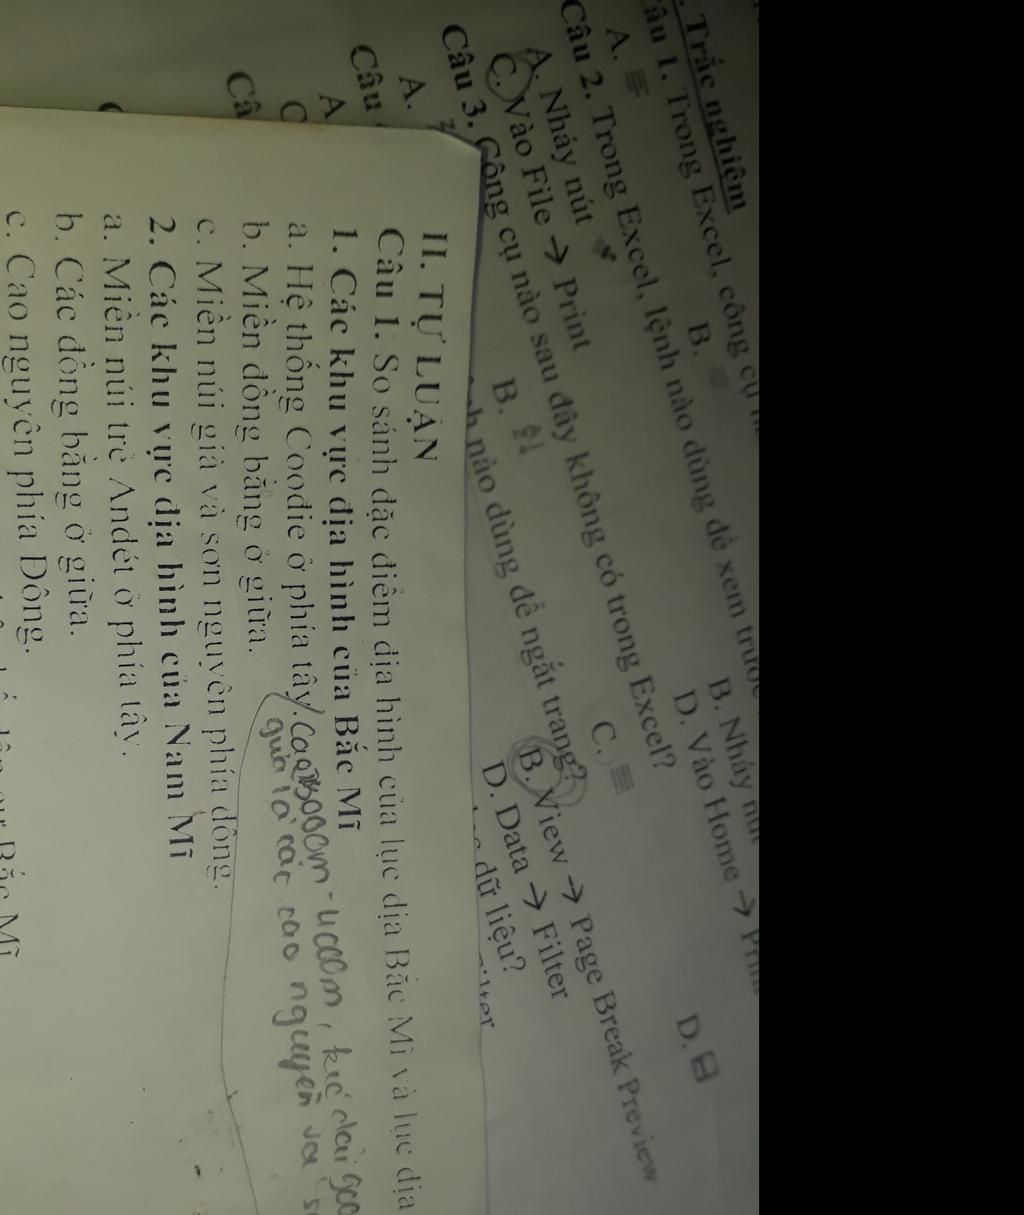 . Trắc nghiệm
âu 1. Trong Excel, công cụ
A. B. C. D.
Câu 2. Trong Excel, lệnh nào dùng để xem trước
A. Nháy nút B. Nháy nút
C. Vào File → Print D. Vào Home → Print
Câu 3. Công cụ nào sau đây không có trong Excel?
A. B.
Câu nào dùng để ngắt trang?
A B. View → Page Break Preview
C D. Data → Filter
Câ dữ liệu?
II. TỰ LUẬN
Câu 1: So sánh đặc điểm địa hình của lục địa Bắc Mĩ và lục địa
1. Các khu vực địa hình của Bắc Mĩ
a. Hệ thống Coodie ở phía tây. Cao 3000m - 4000m, kéo dài 900
giữa là các cao nguyên và
b. Miền đồng bằng ở giữa.
c. Miền núi già và sơn nguyên phía đông.
2. Các khu vực địa hình của Nam Mĩ
a. Miền núi trẻ Andét ở phía tây.
b. Các đồng bằng ở giữa.
c. Cao nguyên phía Đông.
Bắc Mĩ